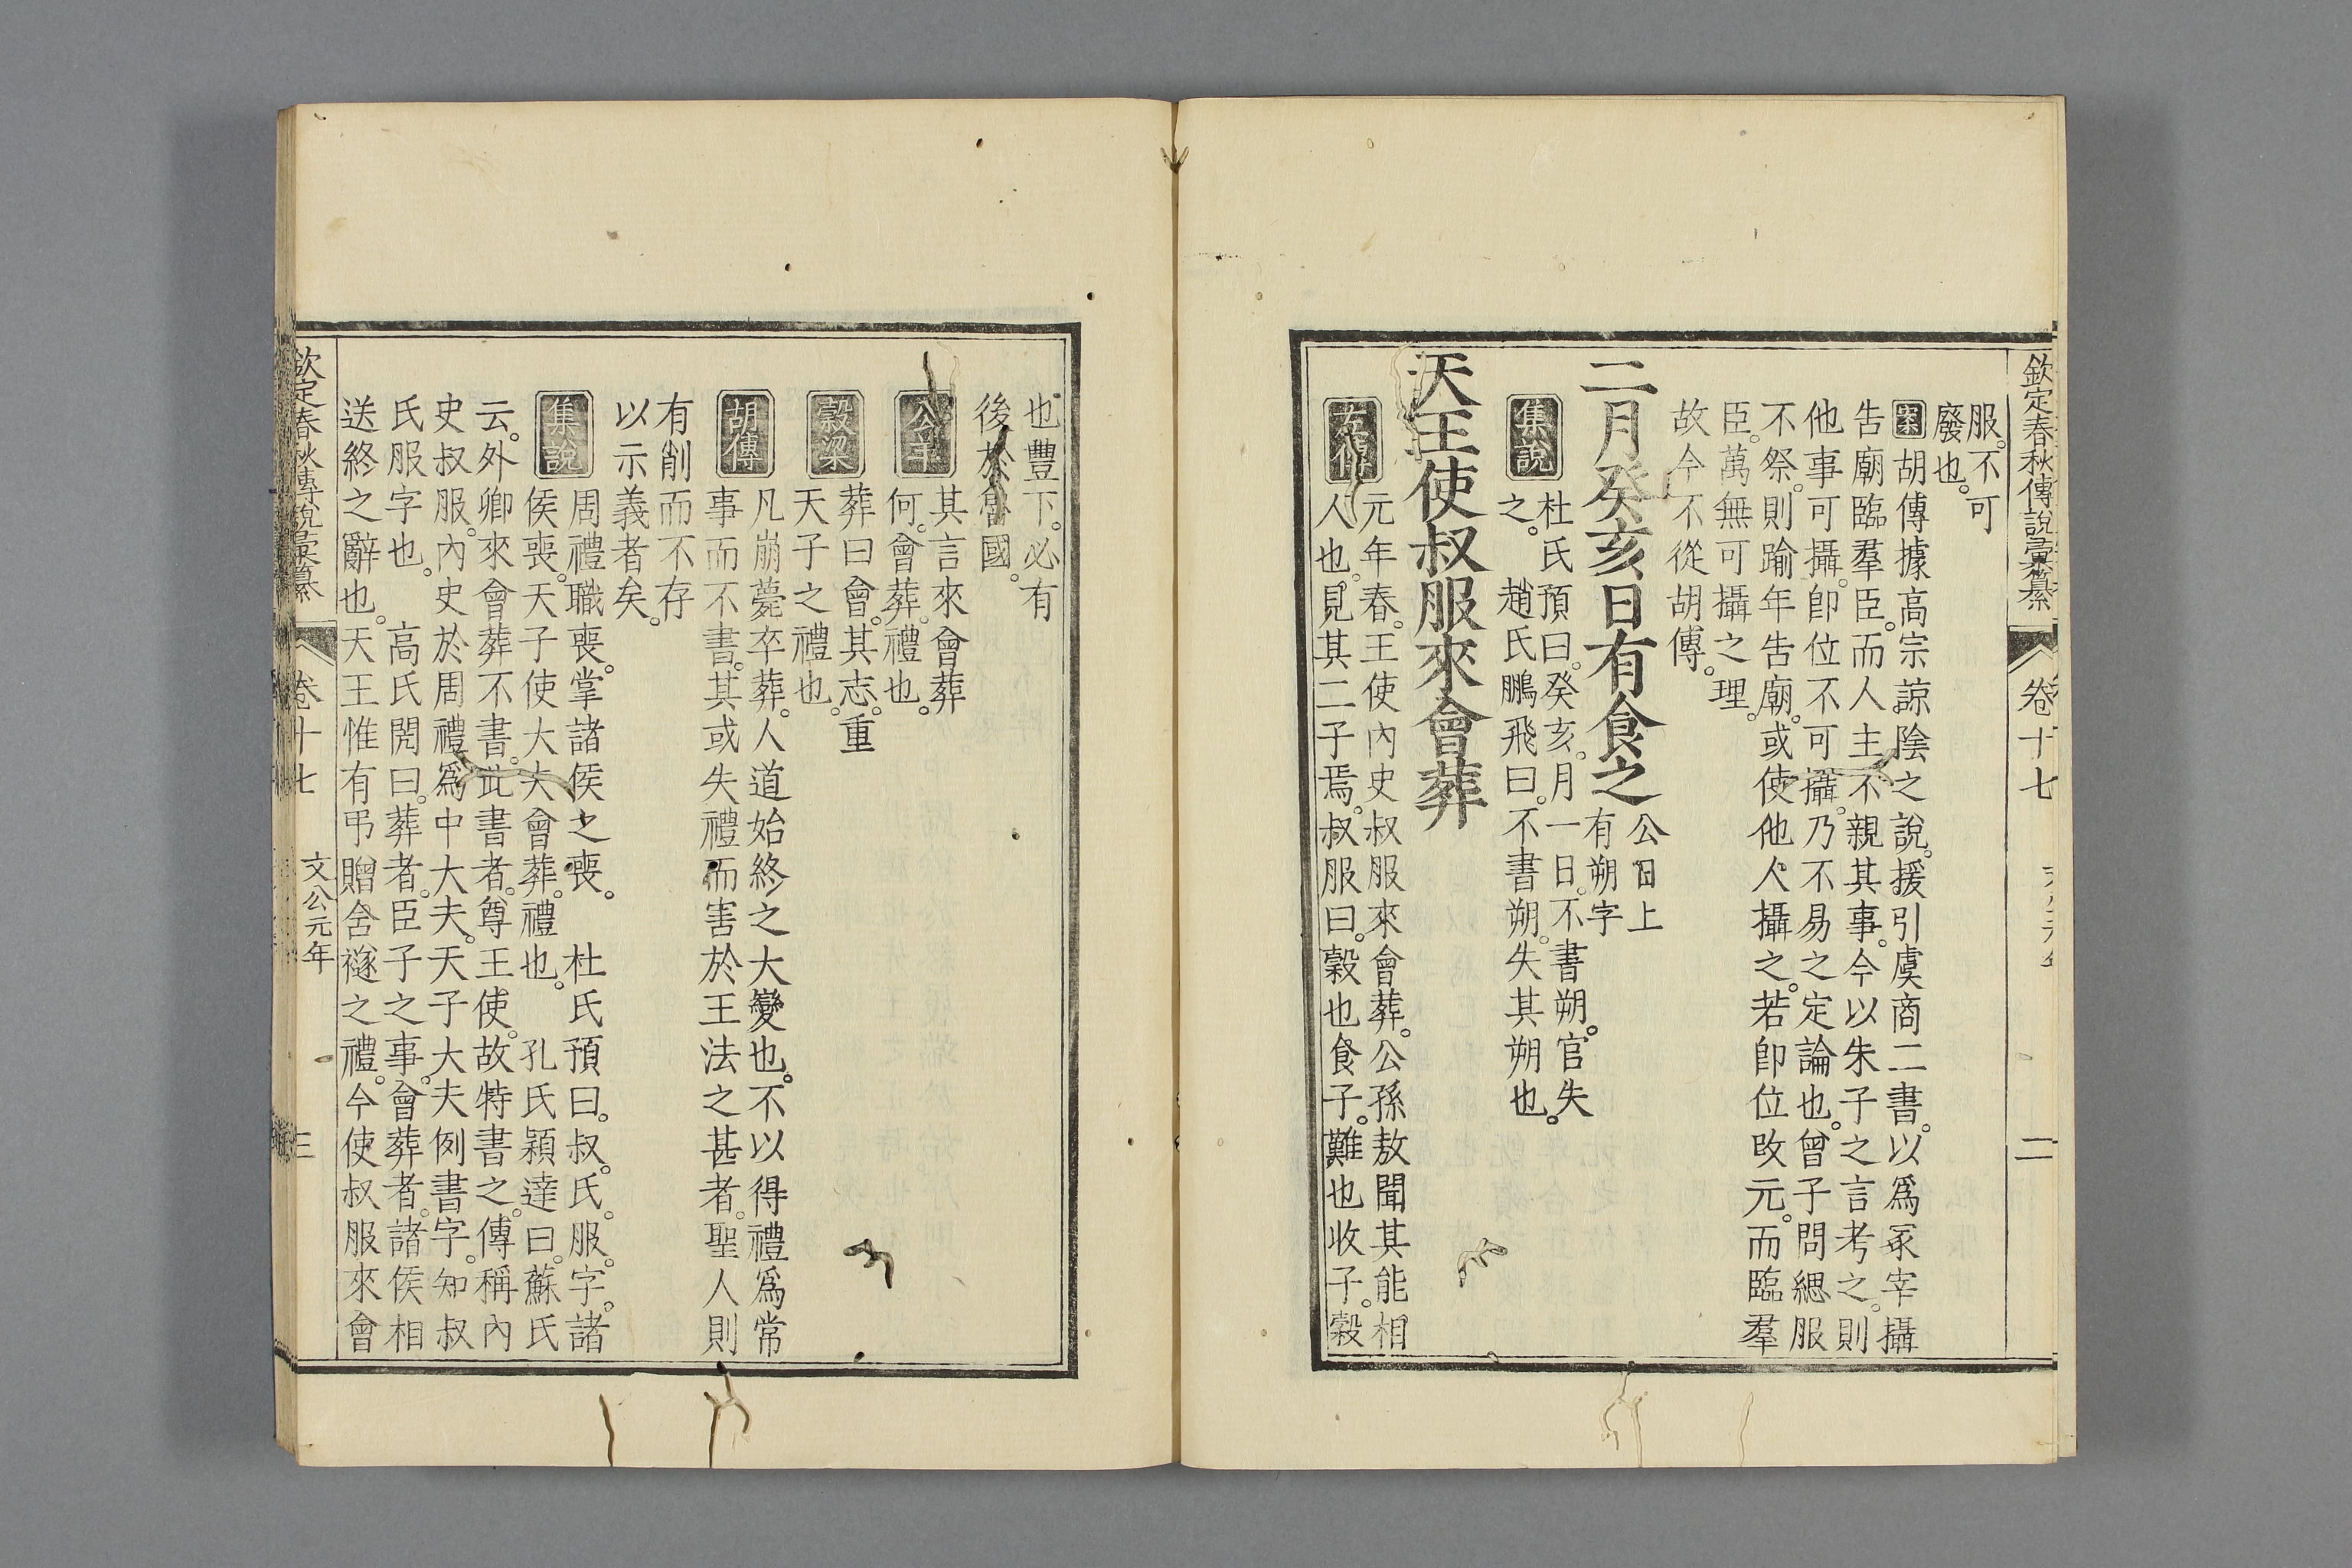 欽定春秋傳說彙纂 卷十七 二
服。不可
廢也。
案 胡傳據高宗諒陰之說。援引虞商二書。以爲冢宰攝
告廟臨羣臣。而人主不親其事。今以朱子之言考之。則
他事可攝。卽位不可攝。乃不易之定論也。曾子問緦服
不祭。則踰年告廟。或使他人攝之。若卽位改元。而臨羣
臣。萬無可攝之理。
故今不從胡傳。
二月癸亥日有食之 公日上
有朔字
集說 杜氏預曰。癸亥。月一日。不書朔。官失
之。 趙氏鵬飛曰。不書朔。失其朔也。
天王使叔服來會葬
左傳 元年春。王使內史叔服來會葬。公孫敖聞其能相
人也。見其二子焉。叔服曰。穀也食子。難也收子。穀
也豐下。必有
後於魯國。
公羊 其言來會葬
何。會葬。禮也。
穀梁 葬曰會。其志。重
天子之禮也。
胡傳 凡崩薨卒葬。人道始終之大變也。不以得禮爲常
事而不書。其或失禮而害於王法之甚者。聖人則
有削而不存
以示義者矣。
集說 周禮。職喪。掌諸侯之喪。 杜氏預曰。叔。氏。服。字。諸
侯喪。天子使大夫會葬。禮也。 孔氏穎達曰。蘇氏
云。外卿來會葬不書。此書者。尊王使。故特書之。傳稱內
史叔服。內史於周禮爲中大夫。天子大夫例書字。知叔
氏服字也。 高氏閌曰。葬者。臣子之事。會葬者。諸侯相
送終之辭也。天王惟有弔贈含襚之禮。今使叔服來會
欽定春秋傳說彙纂 卷十七 文公元年 三